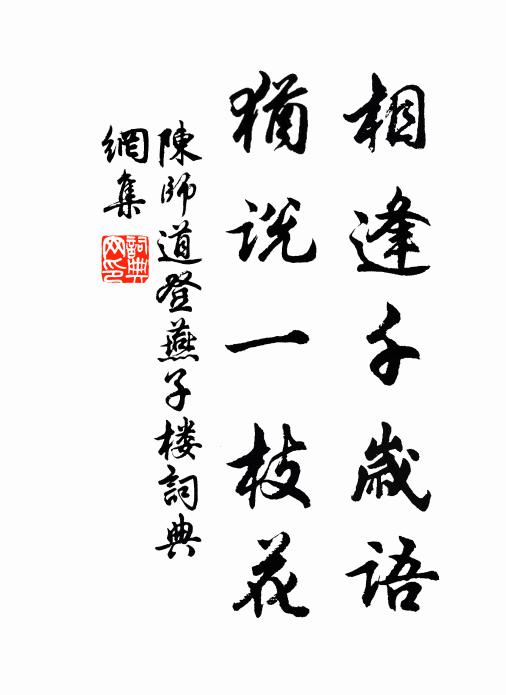 相逢千歲語
猶説一枝花
陳師道登燕子楼詞典
網集
詞典
网印